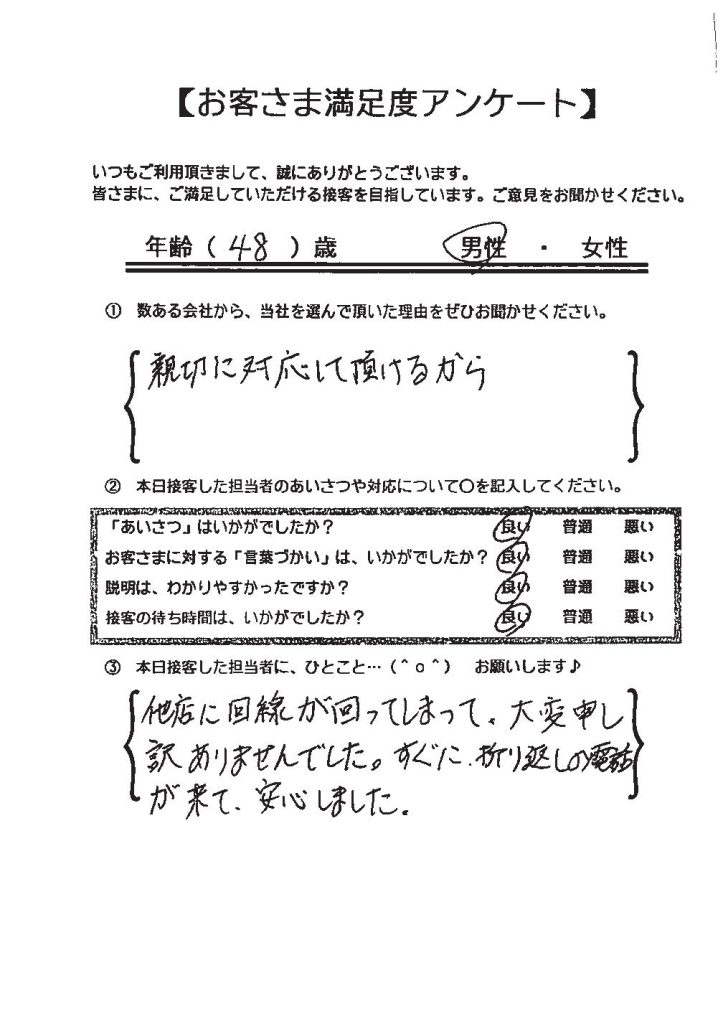 【お客さま満足度アンケート】
いつもご利用頂きまして、誠にありがとうございます。
皆さまに、ご満足していただける接客を目指しています。ご意見をお聞かせください。
年齢（ 48 ）歳　男性 ・ 女性
① 数ある会社から、当社を選んで頂いた理由をぜひお聞かせください。
親切に対応して頂けるから
② 本日接客した担当者のあいさつや対応について〇を記入してください。
「あいさつ」はいかがでしたか？　良い　普通　悪い
お客さまに対する「言葉づかい」は、いかがでしたか？　良い　普通　悪い
説明は、わかりやすかったですか？　良い　普通　悪い
接客の待ち時間は、いかがでしたか？　良い　普通　悪い
③ 本日接客した担当者に、ひとこと…（＾ｏ＾）　お願いします♪
他店に回線が回ってしまって、大変申し
訳ありませんでした。すぐに、折り返しの電話
が来て、安心しました。